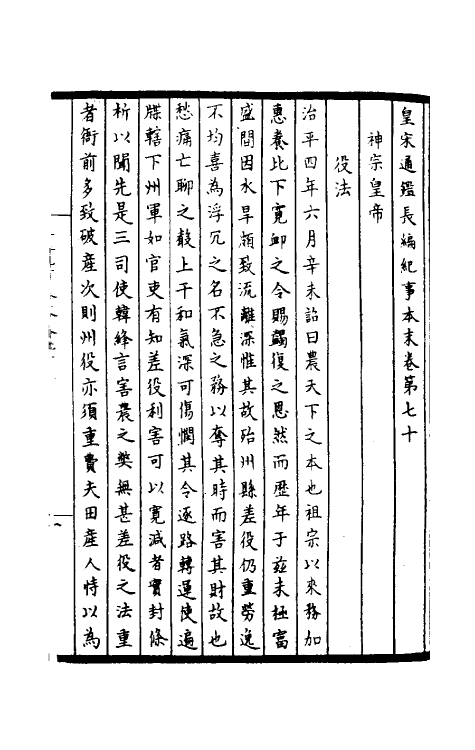 皇宋通鑑長編紀事本末卷第七十
神宗皇帝
役法
治平四年六月辛未詔曰農天下之本也祖宗以來務加
惠養比下寬卹之令賜蠲復之恩然而歷年于茲未極富
盛間因水旱頗致流離深惟其故殆州縣差役仍重勞逸
不均喜為浮冗之名不急之務以奪其時而害其財故也
愁痛亡聊之聲上干和氣深可傷憫其令逐路轉運使遍
牒轄下州軍如官吏有知差役利害可以寬減者實封條
析以聞先是三司使韓絳言害農之獘無甚差役之法重
者衙前多致破產次則州役亦須重費夫田產人恃以為